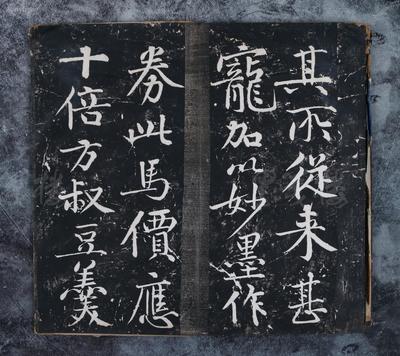 其所從来甚
寵加以妙墨作
券此馬價應
十倍方叔豆羹